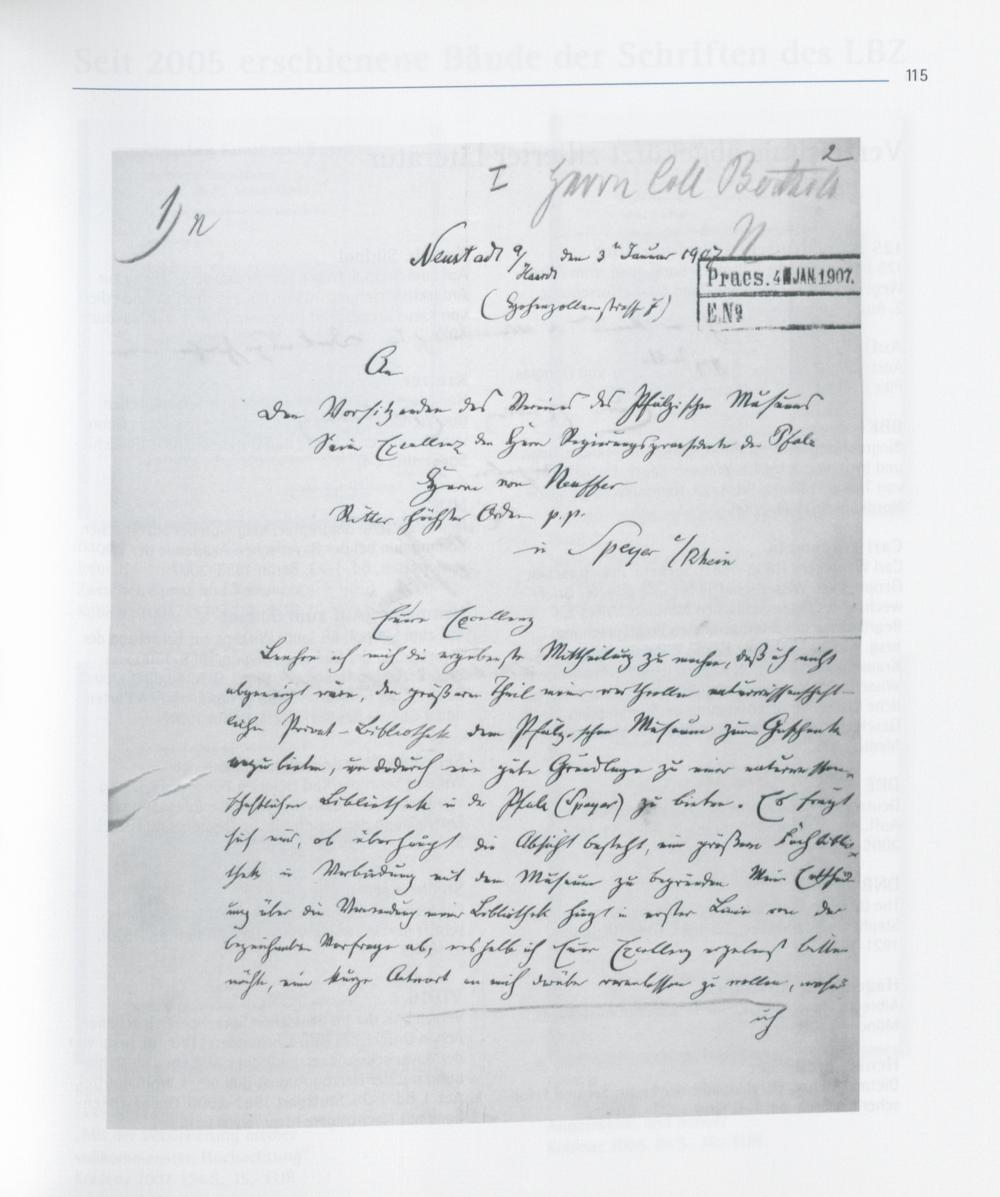 115
I Herrn Coll Berthold 2
1) n
Neustadt a/Haardt den 3n Januar 1907
Praes. 4 JAN. 1907.
E.Nº
(Hohenzollernstraße 7)
An
Den Vorsitzenden des Vereines des Pfälzischen Museums
Seine Excellenz den Herrn Regierungspraesidenten der Pfalz
Herrn von Neuffer
Ritter höchster Orden p.p.
in Speyer a/Rhein
Euere Excellenz
beehre ich mich die ergebenste Mittheilung zu machen, daß ich nicht
abgeneigt wäre, den größeren Theil meiner werthvollen naturwissenschaft-
lichen Privat-Bibliothek dem Pfälzischen Museum zum Geschenk
anzubieten, um dadurch eine gute Grundlage zu einer naturwissen-
schaftlichen Bibliothek in der Pfalz (Speyer) zu bieten. Es frägt
sich nur, ob überhaupt die Absicht besteht, eine größere Fachbiblio-
thek in Verbindung mit dem Museum zu begründen. Meine Entscheid-
ung über die Verwendung meiner Bibliothek hängt in erster Linie von der
bezeichneten Vorfrage ab, weshalb ich Euer Excellenz ergebenst bitten
möchte, eine kurze Antwort an mich darüber veranlassen zu wollen, wobei
ich